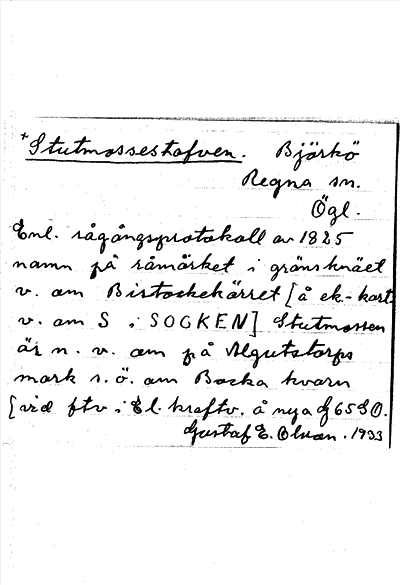 *Stutmossestafven. Björkö
Regna sn.
Ögl.
Enl. rågångsprotokoll av 1825
namn på råmärket i gränsknäet
v. om Bistockekärret [å ek-kart.
v. om S i SOCKEN] Stutmossen
är n. v. om på Algutstorps
mark s. ö. om Backa kvarn
[vid ftv i El. kraftv. å nya G65SO.
Gustaf E. Olson. 1933